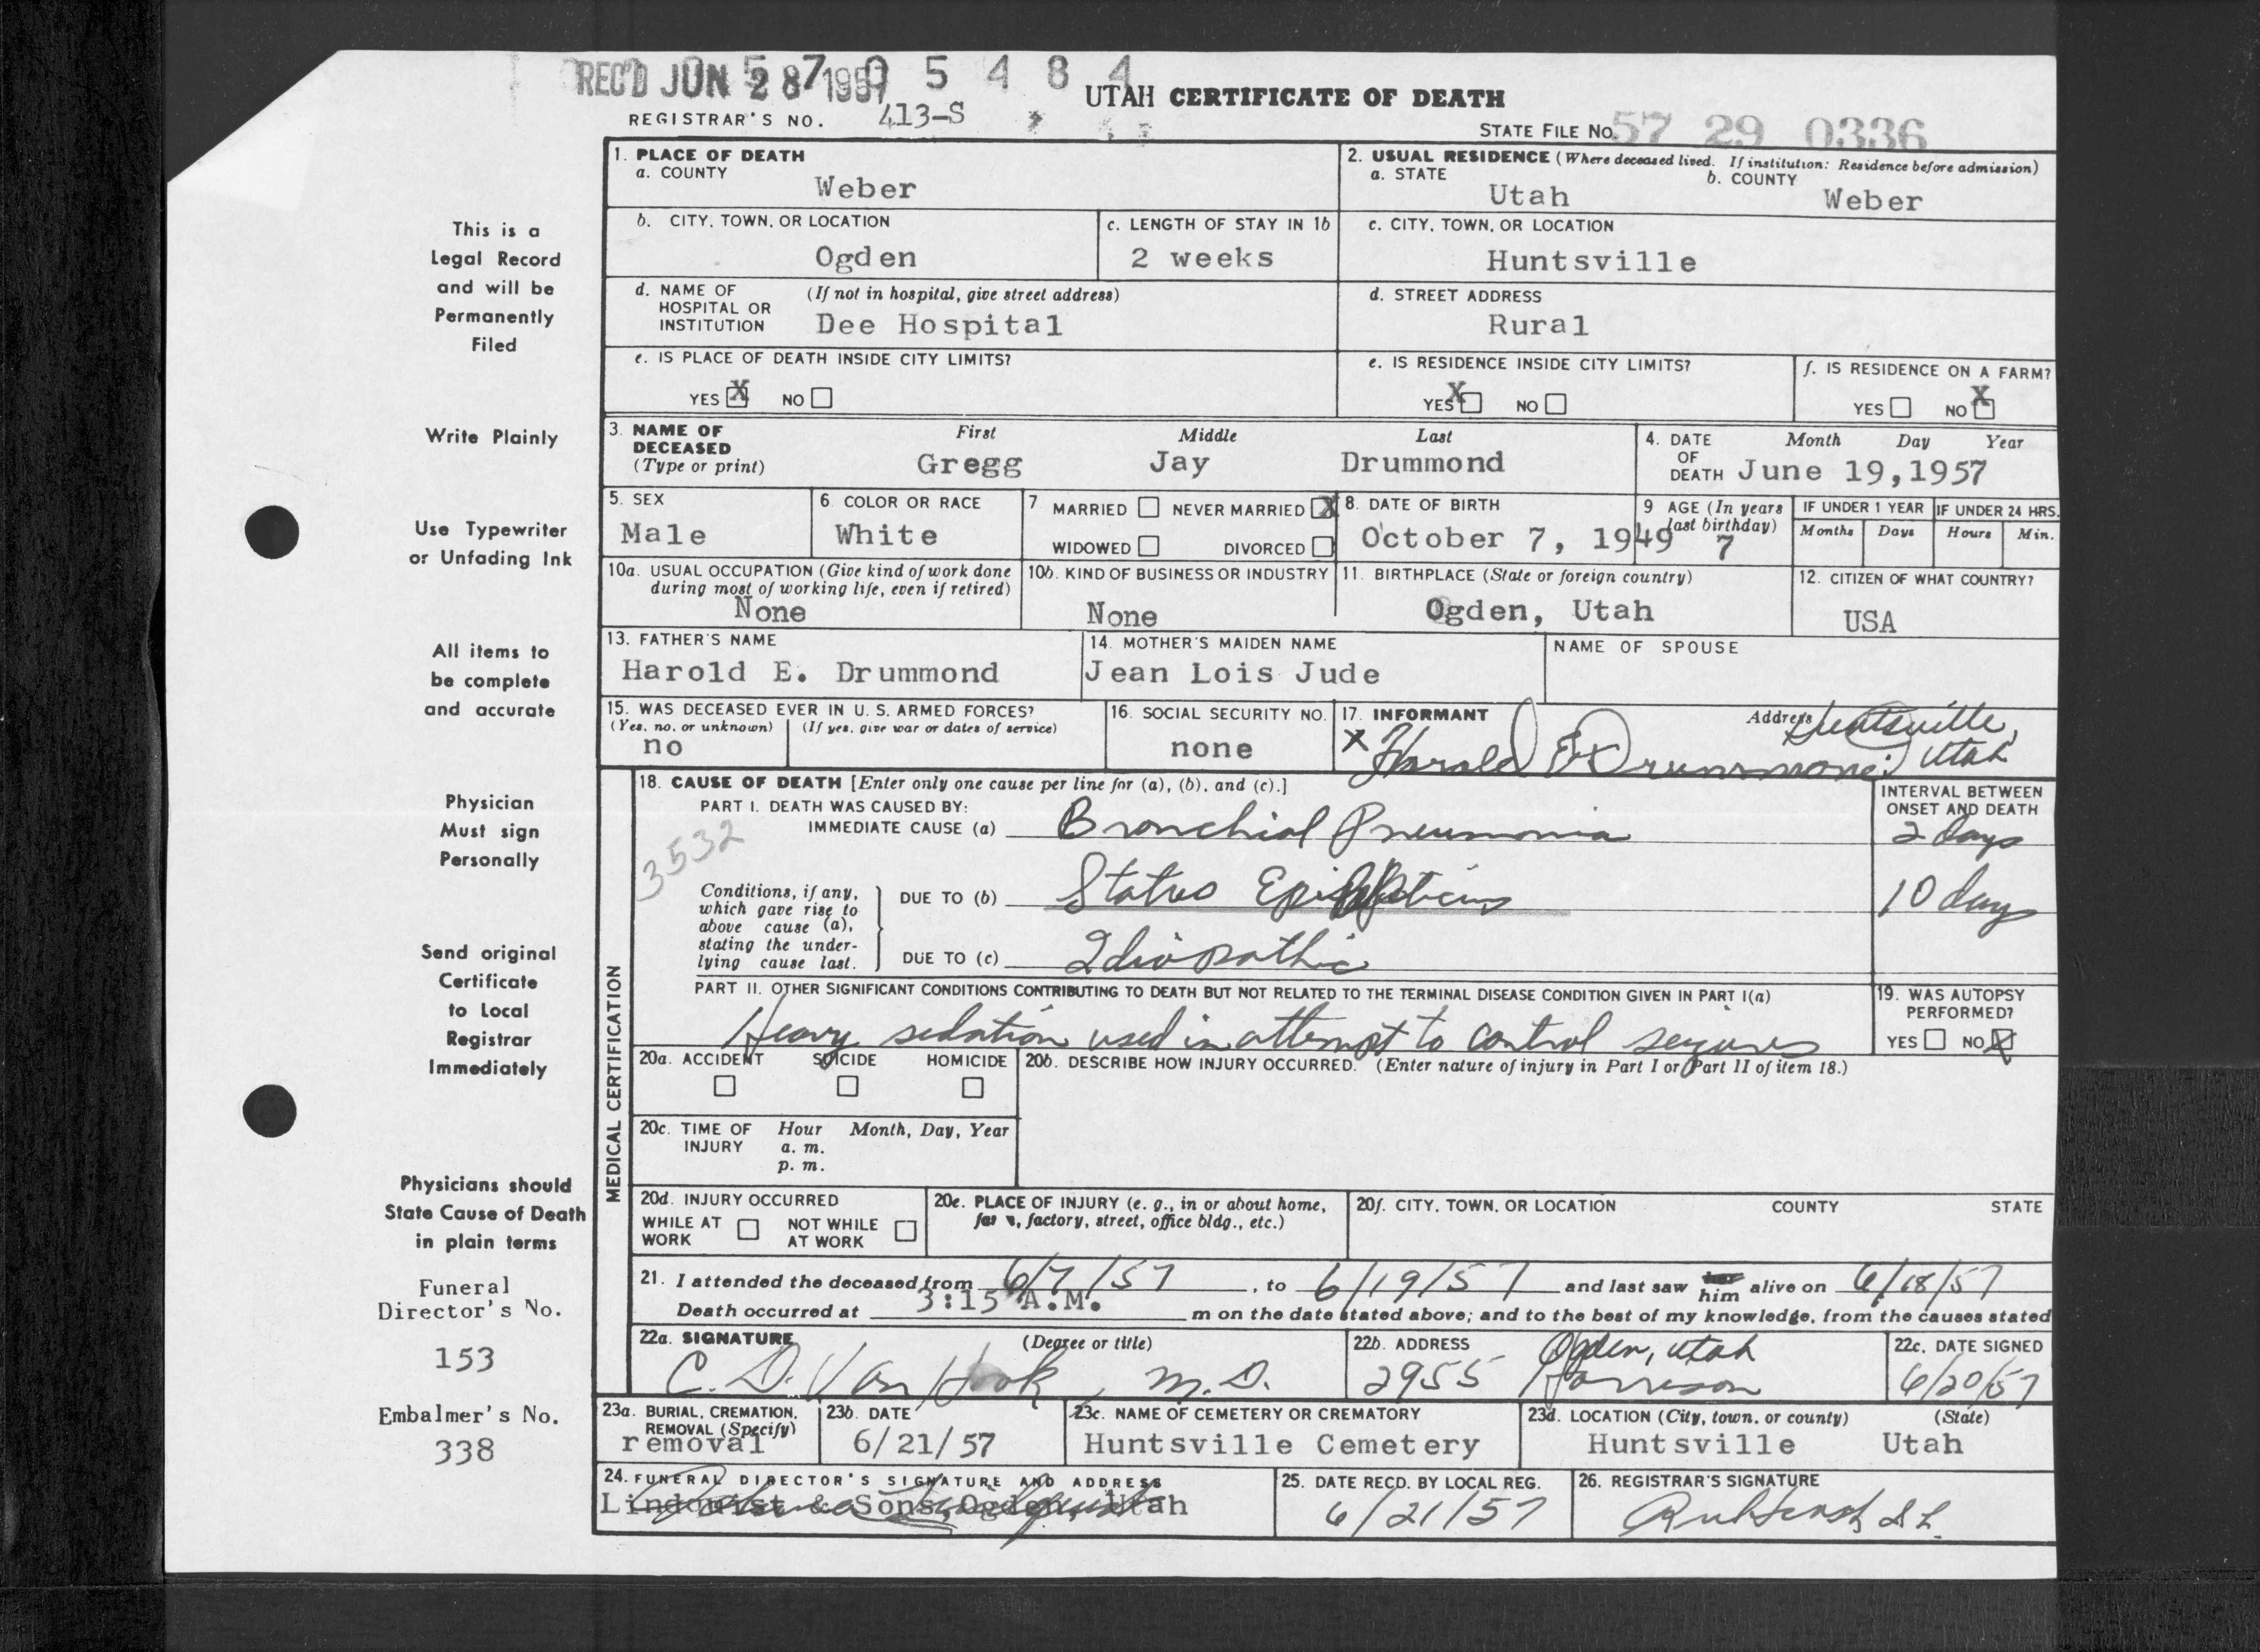 REC'D JUN 28 1957
5 7 0 5 4 8 4
UTAH CERTIFICATE OF DEATH
REGISTRAR'S NO. 413-S
STATE FILE NO. 57 29 0336
This is a
Legal Record
and will be
Permanently
Filed
Write Plainly
Use Typewriter
or Unfading Ink
All items to
be complete
and accurate
Physician
Must sign
Personally
Send original
Certificate
to Local
Registrar
Immediately
Physicians should
State Cause of Death
in plain terms
Funeral
Director's No.
153
Embalmer's No.
338
1. PLACE OF DEATH
a. COUNTY
Weber
2. USUAL RESIDENCE (Where deceased lived. If institution: Residence before admission)
a. STATE
Utah
b. COUNTY
Weber
b. CITY, TOWN, OR LOCATION
Ogden
c. LENGTH OF STAY IN 1b
2 weeks
c. CITY, TOWN, OR LOCATION
Huntsville
d. NAME OF HOSPITAL OR INSTITUTION
(If not in hospital, give street address)
Dee Hospital
d. STREET ADDRESS
Rural
e. IS PLACE OF DEATH INSIDE CITY LIMITS?
YES X NO
e. IS RESIDENCE INSIDE CITY LIMITS?
YES X NO
f. IS RESIDENCE ON A FARM?
YES NO X
3. NAME OF DECEASED (Type or print)
First Middle Last
Gregg Jay Drummond
4. DATE OF DEATH
Month Day Year
June 19,1957
5. SEX
Male
6. COLOR OR RACE
White
7 MARRIED NEVER MARRIED X
WIDOWED DIVORCED
8. DATE OF BIRTH
October 7, 1949
9 AGE (In years last birthday)
7
IF UNDER 1 YEAR
Months Days
IF UNDER 24 HRS.
Hours Min.
10a. USUAL OCCUPATION (Give kind of work done during most of working life, even if retired)
None
10b. KIND OF BUSINESS OR INDUSTRY
None
11. BIRTHPLACE (State or foreign country)
Ogden, Utah
12. CITIZEN OF WHAT COUNTRY?
USA
13. FATHER'S NAME
Harold E. Drummond
14. MOTHER'S MAIDEN NAME
Jean Lois Jude
NAME OF SPOUSE
15. WAS DECEASED EVER IN U. S. ARMED FORCES?
(Yes, no, or unknown) (If yes, give war or dates of service)
no
16. SOCIAL SECURITY NO.
none
17. INFORMANT
X Harold E Drummond
Address Huntsville, Utah
MEDICAL CERTIFICATION
18. CAUSE OF DEATH [Enter only one cause per line for (a), (b), and (c).]
PART I. DEATH WAS CAUSED BY:
IMMEDIATE CAUSE (a) Bronchial Pneumonia
INTERVAL BETWEEN ONSET AND DEATH
2 days
3532
Conditions, if any, which gave rise to above cause (a), stating the underlying cause last.
DUE TO (b) Status Epilepticus
10 days
DUE TO (c) Idiopathic
PART II. OTHER SIGNIFICANT CONDITIONS CONTRIBUTING TO DEATH BUT NOT RELATED TO THE TERMINAL DISEASE CONDITION GIVEN IN PART I(a)
Heavy sedation used in attempt to control seizures
19. WAS AUTOPSY PERFORMED?
YES NO X
20a. ACCIDENT SUICIDE HOMICIDE
20b. DESCRIBE HOW INJURY OCCURRED. (Enter nature of injury in Part I or Part II of item 18.)
20c. TIME OF INJURY
Hour Month, Day, Year
a. m.
p. m.
20d. INJURY OCCURRED
WHILE AT WORK NOT WHILE AT WORK
20e. PLACE OF INJURY (e. g., in or about home, farm, factory, street, office bldg., etc.)
20f. CITY, TOWN, OR LOCATION COUNTY STATE
21. I attended the deceased from 6/7/57, to 6/19/57 and last saw her him alive on 6/18/57
Death occurred at 3:15 A.M. m on the date stated above; and to the best of my knowledge, from the causes stated
22a. SIGNATURE (Degree or title)
C. D. Van Hook, M.D.
22b. ADDRESS
2955 Harrison Ogden, Utah
22c. DATE SIGNED
6/20/57
23a. BURIAL, CREMATION, REMOVAL (Specify)
removal
23b. DATE
6/21/57
23c. NAME OF CEMETERY OR CREMATORY
Huntsville Cemetery
23d. LOCATION (City, town, or county) (State)
Huntsville Utah
24. FUNERAL DIRECTOR'S SIGNATURE AND ADDRESS
Lindquist & Sons, Ogden, Utah
25. DATE RECD. BY LOCAL REG.
6/21/57
26. REGISTRAR'S SIGNATURE